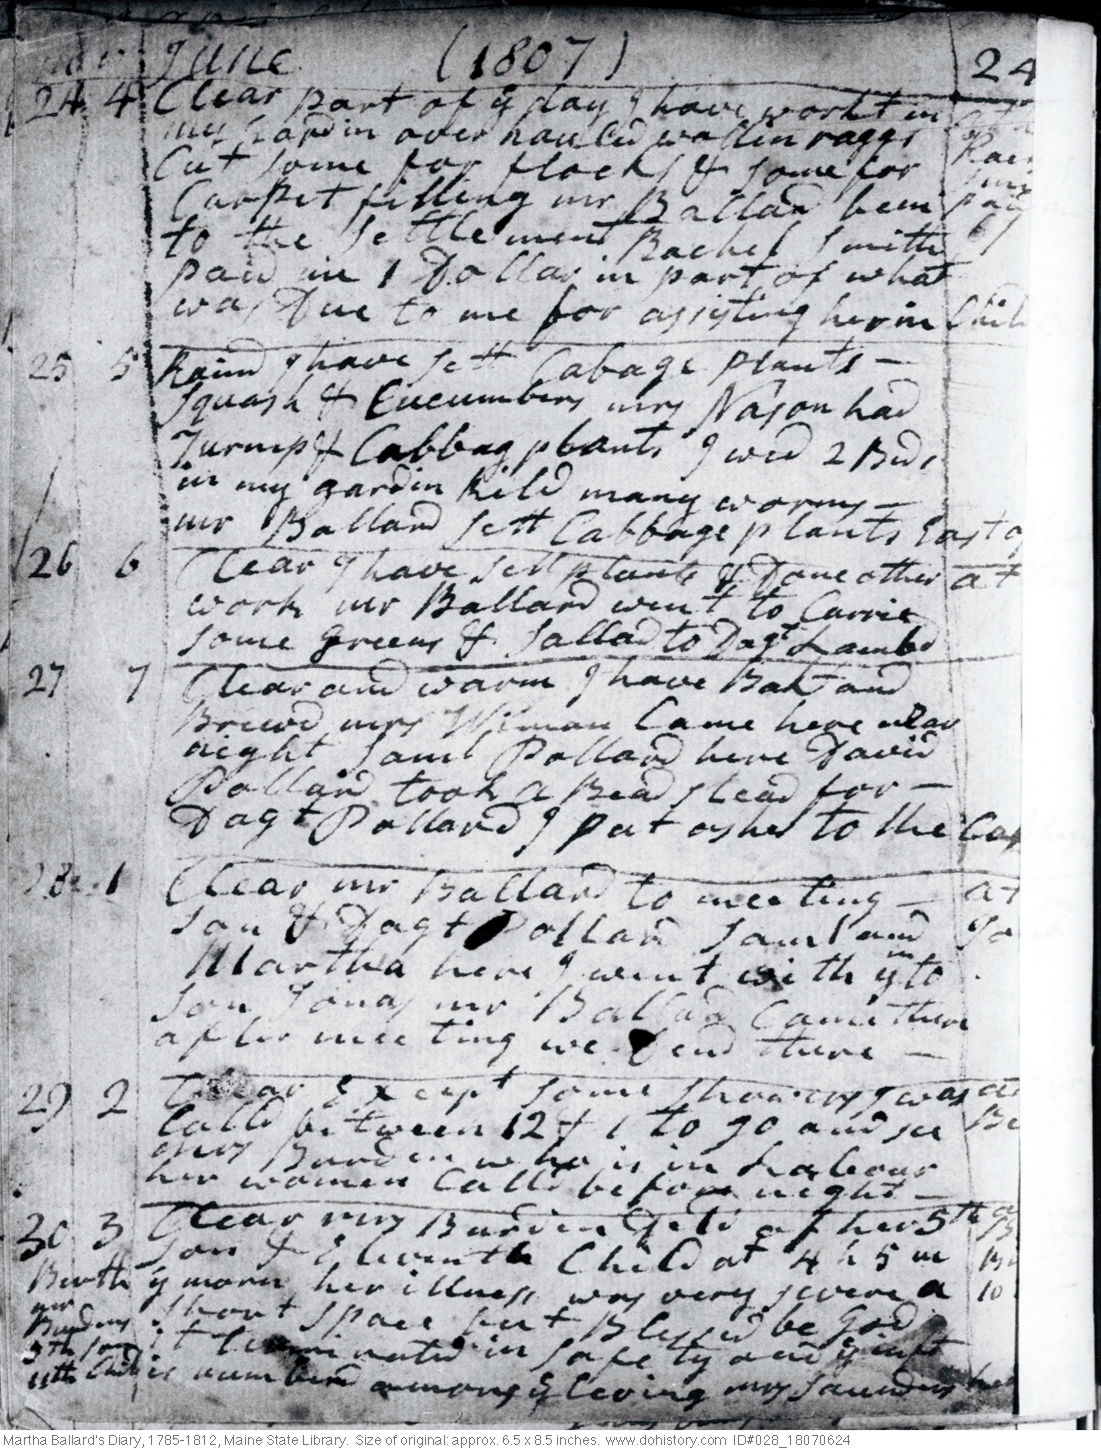 June (1807) 24
24 4 Clear part of ye day I have workt in
my gardin over hauled wollin raggs
Cut some for flocks & some for
Carpet filling mr Ballard been
to the Settlement Rachel Smith
paid me 1 Dollar in part of what
was Due to me for assisting her in Child
25 5 Raind I have sett Cabage plants —
Squash & Cucumbers mrs Nason had
Turnip & Cabbag plants I wed 2 Beds
in my gardin kild many worms —
mr Ballard sett Cabbage plants East of
26 6 Clear I have sett plants & Done other at
work mr Ballard went to Carrie
some Greens & Sallad to Dagt Lambd
27 7 Clear and warm I have Bakt and
Brewd mrs Came here near
night Saml Pollard here David
Pollard took a Bead stead for —
Dagt Pollard I put ashes to the
28 1 Clear mr Ballard to meeting — at
Son & Dagt Pollard Saml and
Martha here I went with ym to
Son Jonas mr Ballard Came there
after meeting we there —
29 2 Clear Except some showers I was at
Calld between 12 & 1 to go and see
mrs Burden who is in Labour
her women Calld before night —
30 3 Clear mrs Burden Deld of her 5th
Son & Eleventh Child at 4 h 5 m
Birth ye morn her illness was very severe a 10
mr short space but Blessed be God
Burdens it terminated in safety and ye inft
5th son
11th Child is numberd among ye living mrs Saunders here
Martha Ballard's Diary, 1785-1812, Maine State Library. Size of original: approx. 6.5 x 8.5 inches. www.dohistory.com ID#028_18070624